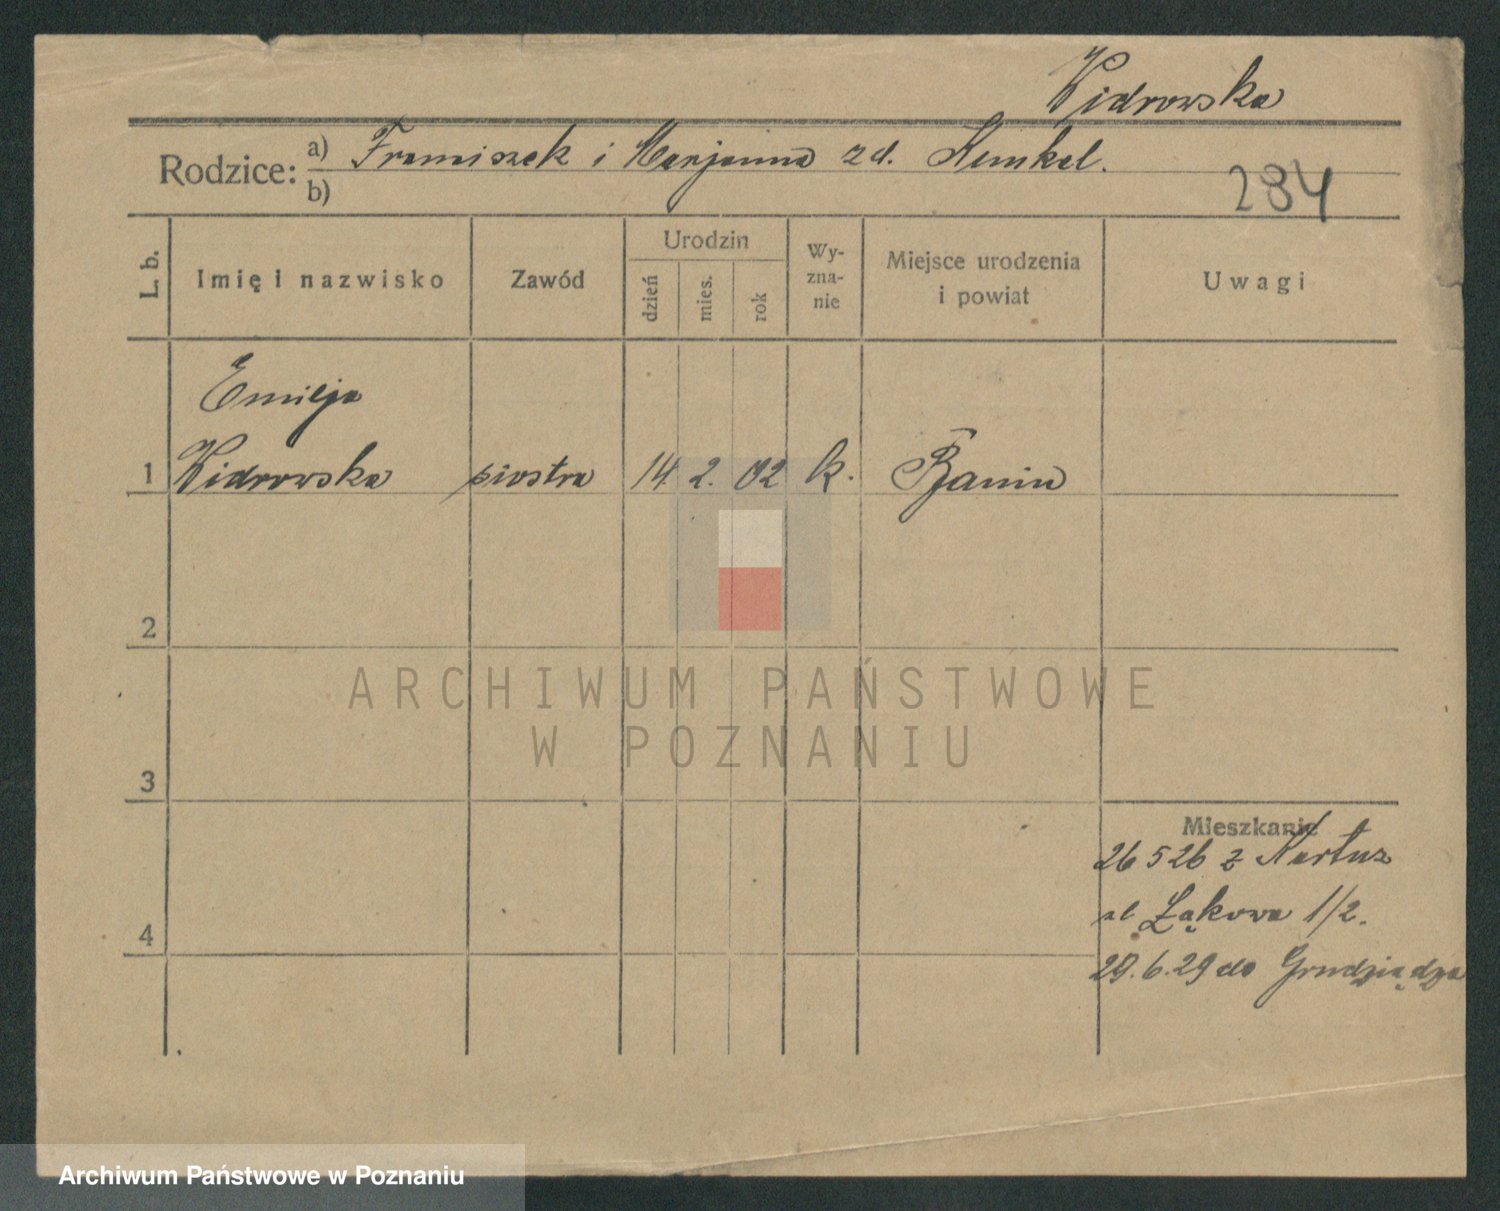 Kidrowska
Rodzice: a) Franciszek i Marjanna zd. Kunkel.
b)
284
L. b.
Imię i nazwisko
Zawód
Urodzin
dzień
mies.
rok
Wy-
zna-
nie
Miejsce urodzenia
i powiat
Uwagi
Emilja
1 Kidrowska siostra 14 2. 02 k. Banin
2
3
4
Mieszkanie
26 5 26 z Kartuz
ul. Łąkowa 1/2.
29.6.29 do Grudziądza
ARCHIWUM PAŃSTWOWE
W POZNANIU
Archiwum Państwowe w Poznaniu